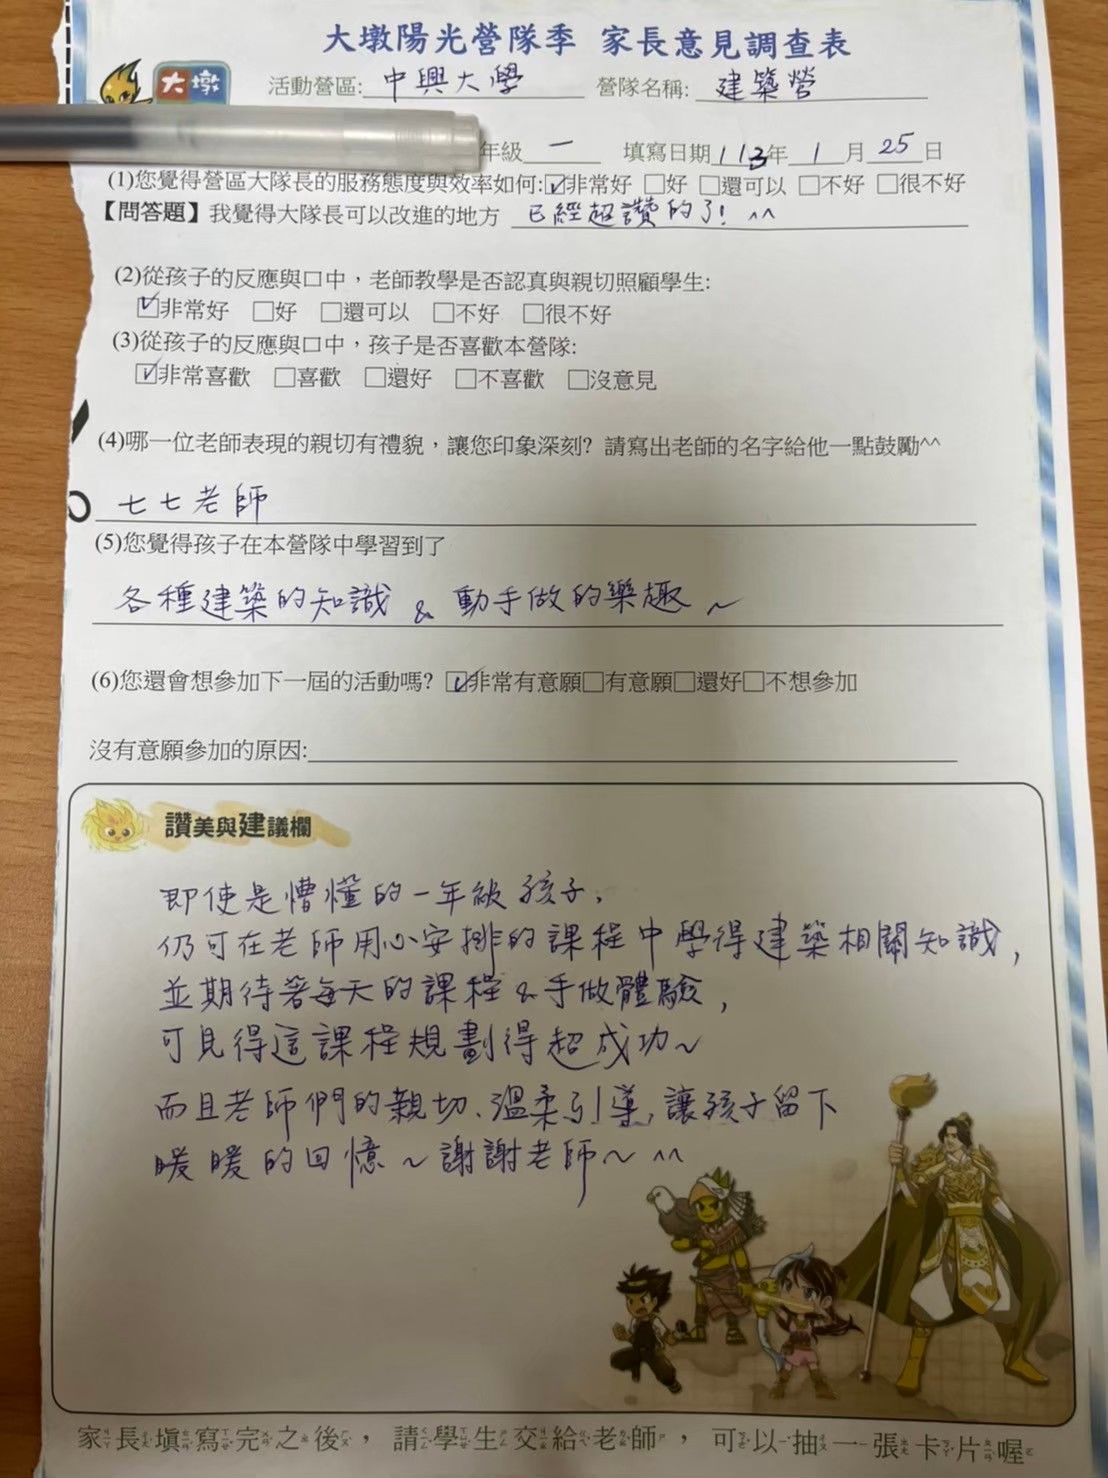 大墩陽光營隊季 家長意見調查表
大墩
活動營區: 中興大學 營隊名稱: 建築營
年級 一 填寫日期 113年 1 月 25 日
(1)您覺得營區大隊長的服務態度與效率如何:☑非常好 □好 □還可以 □不好 □很不好
【問答題】我覺得大隊長可以改進的地方 已經超讚的了! ^^
(2)從孩子的反應與口中，老師教學是否認真與親切照顧學生:
☑非常好 □好 □還可以 □不好 □很不好
(3)從孩子的反應與口中，孩子是否喜歡本營隊:
☑非常喜歡 □喜歡 □還好 □不喜歡 □沒意見
(4)哪一位老師表現的親切有禮貌，讓您印象深刻? 請寫出老師的名字給他一點鼓勵^^
七七老師
(5)您覺得孩子在本營隊中學習到了
各種建築的知識 & 動手做的樂趣~
(6)您還會想參加下一屆的活動嗎? ☑非常有意願□有意願□還好□不想參加
沒有意願參加的原因:
讚美與建議欄
即使是懵懂的一年級孩子,
仍可在老師用心安排的課程中學得建築相關知識,
並期待著每天的課程&手做體驗,
可見得這課程規劃得超成功~
而且老師們的親切、溫柔引導,讓孩子留下
暖暖的回憶~謝謝老師~ ^^
家長填寫完之後，請學生交給老師，可以抽一張卡片喔